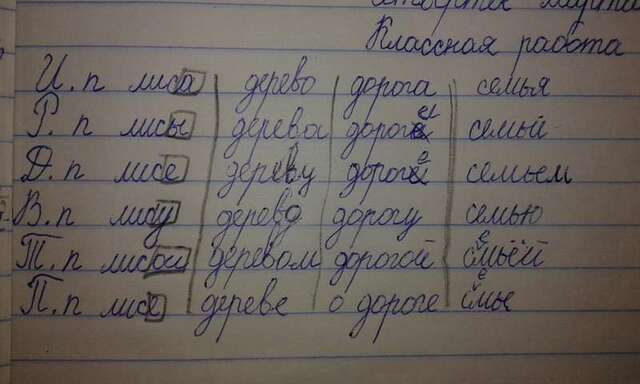 Классная работа
И.п лиса дерево дорога семья
Р.п лисы дерева дороги семьй
Д.п лисе дереву дороге семьем
В.п лису дерево дорогу семью
Т.п лисой деревом дорогой семьёй
П.п лисе дереве о дороге семье